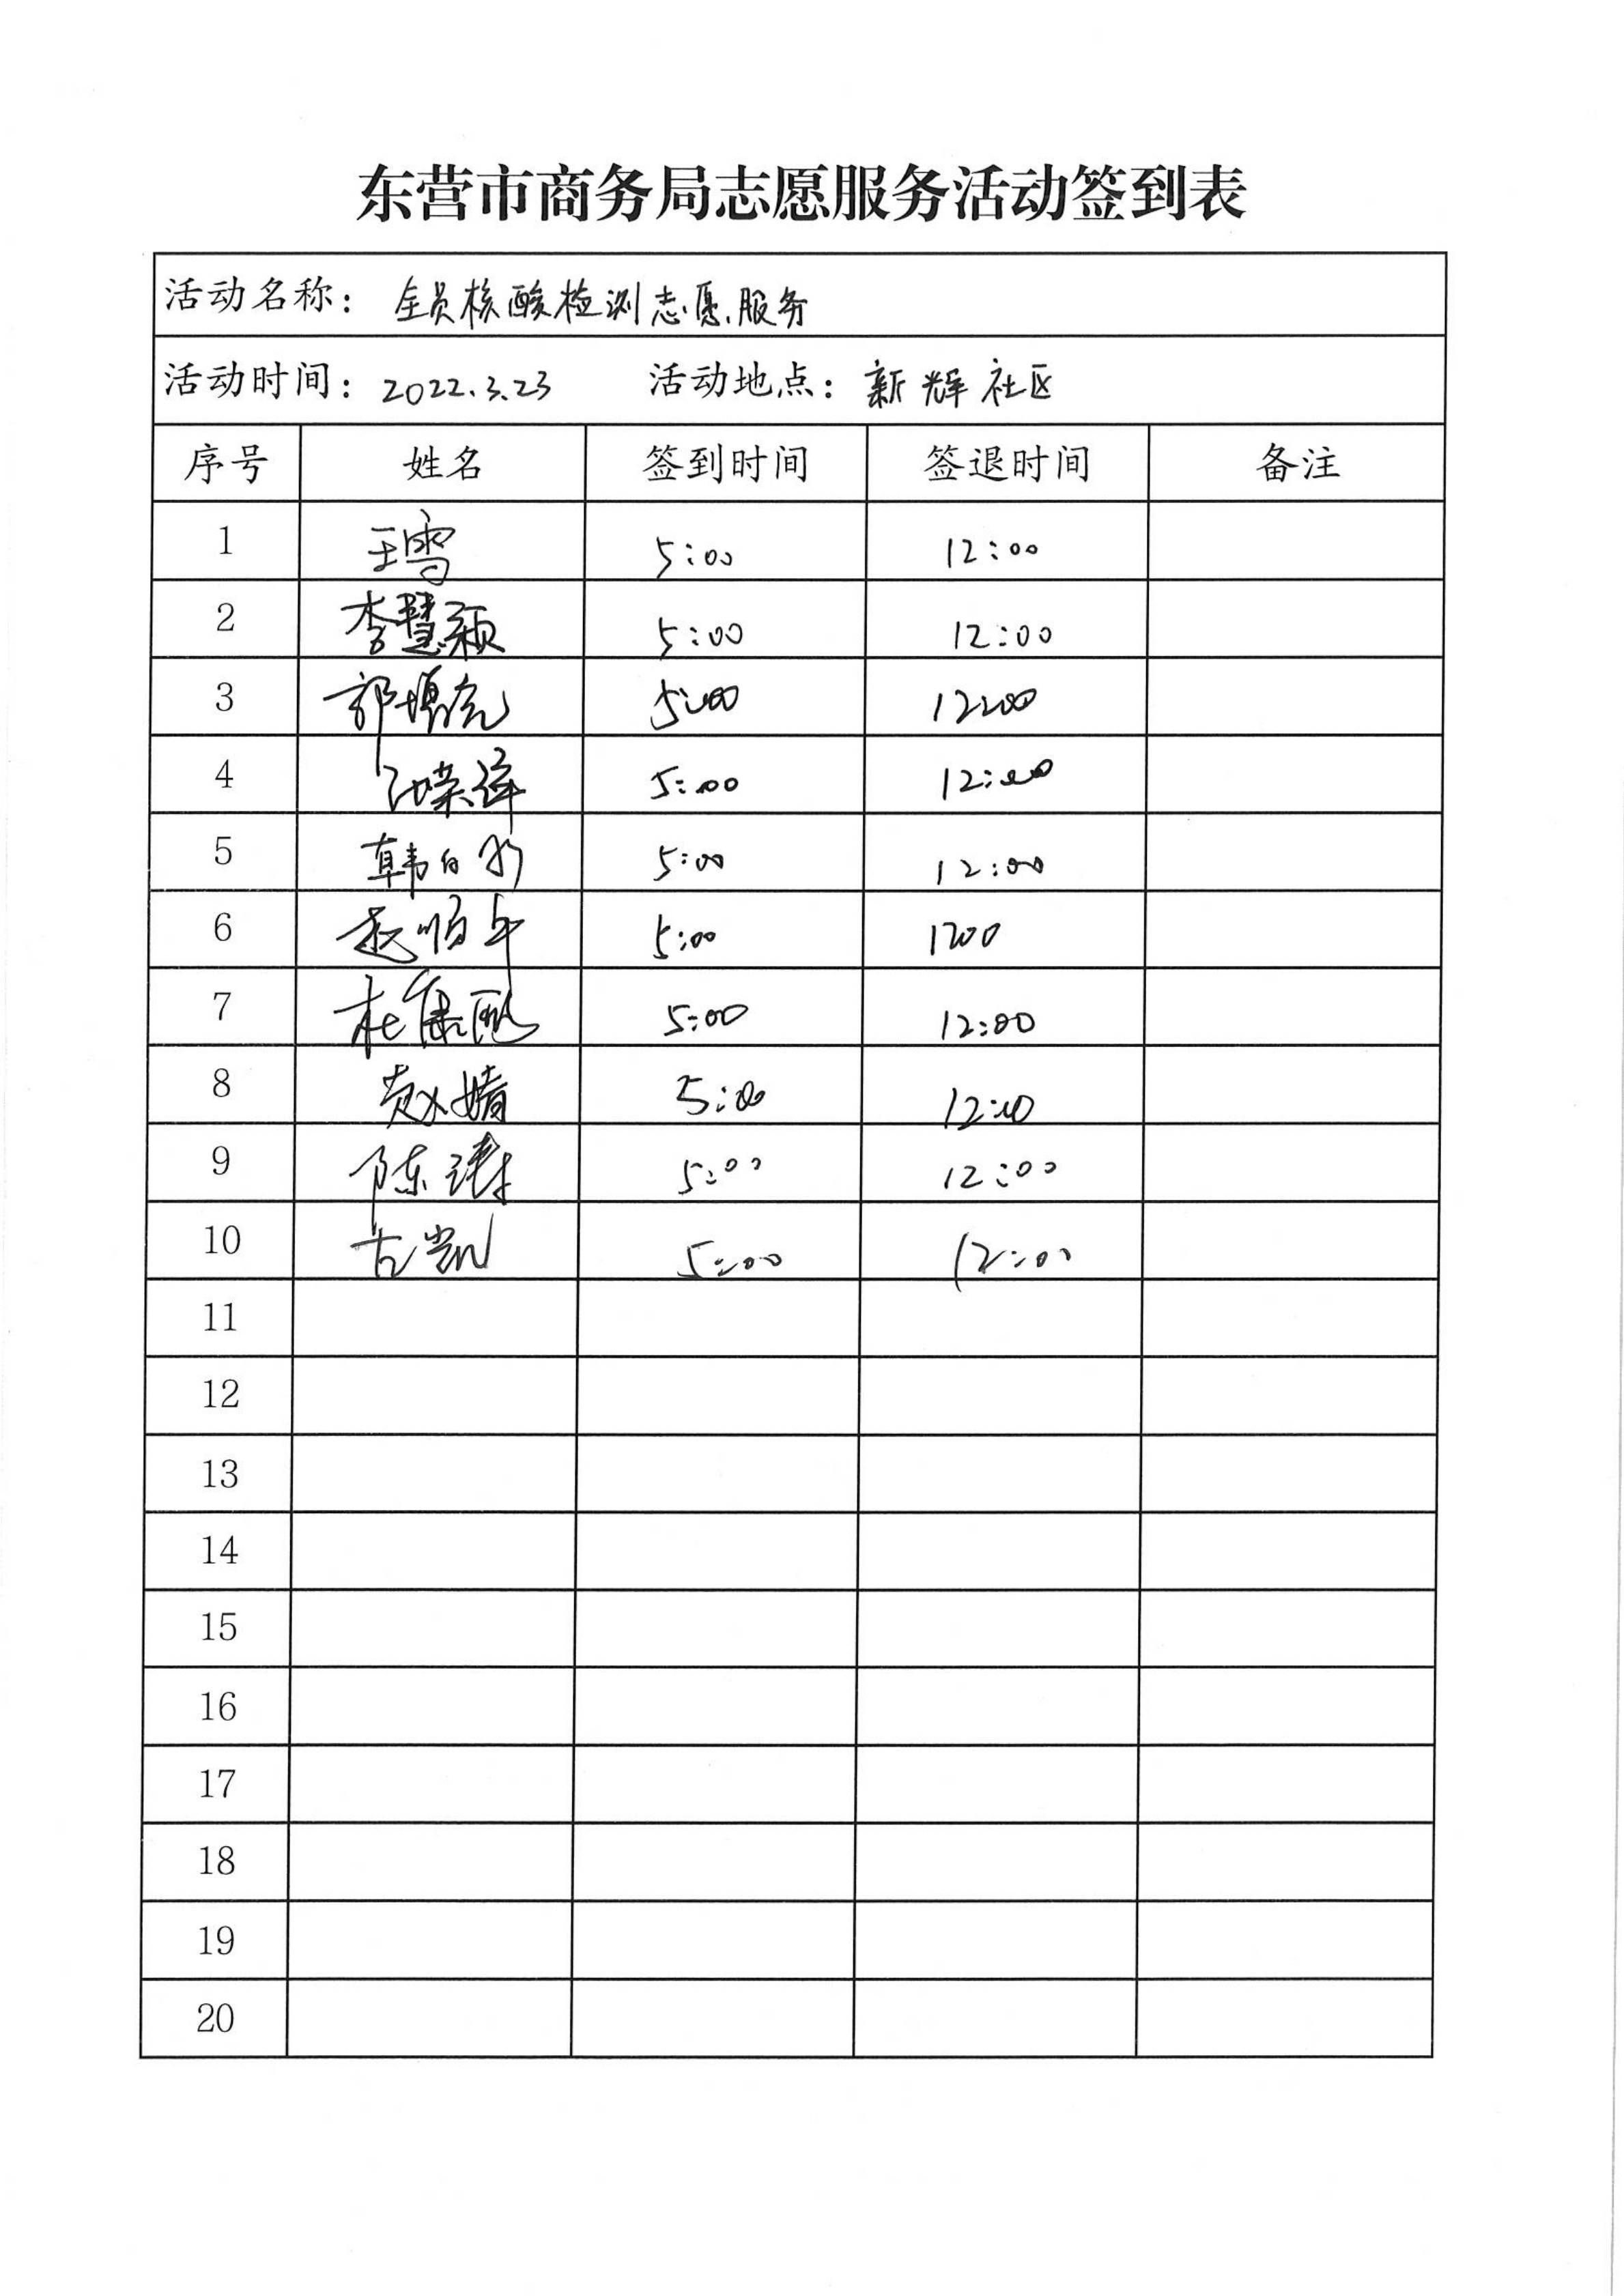 东营市商务局志愿服务活动签到表
活动名称： 全员核酸检测志愿服务
活动时间：2022.3.23 活动地点：新辉社区
序号 姓名 签到时间 签退时间 备注
1 王雪 5:00 12:00
2 李慧颖 5:00 12:00
3 郭 5:00 12:00
4 荣 5:00 12:00
5 韩 5:00 12:00
6 赵顺 5:00 1200
7 杜 5:00 12:00
8 赵婧 5:00 12:00
9 陈 5:00 12:00
10 古凯 5:00 12:00
11
12
13
14
15
16
17
18
19
20